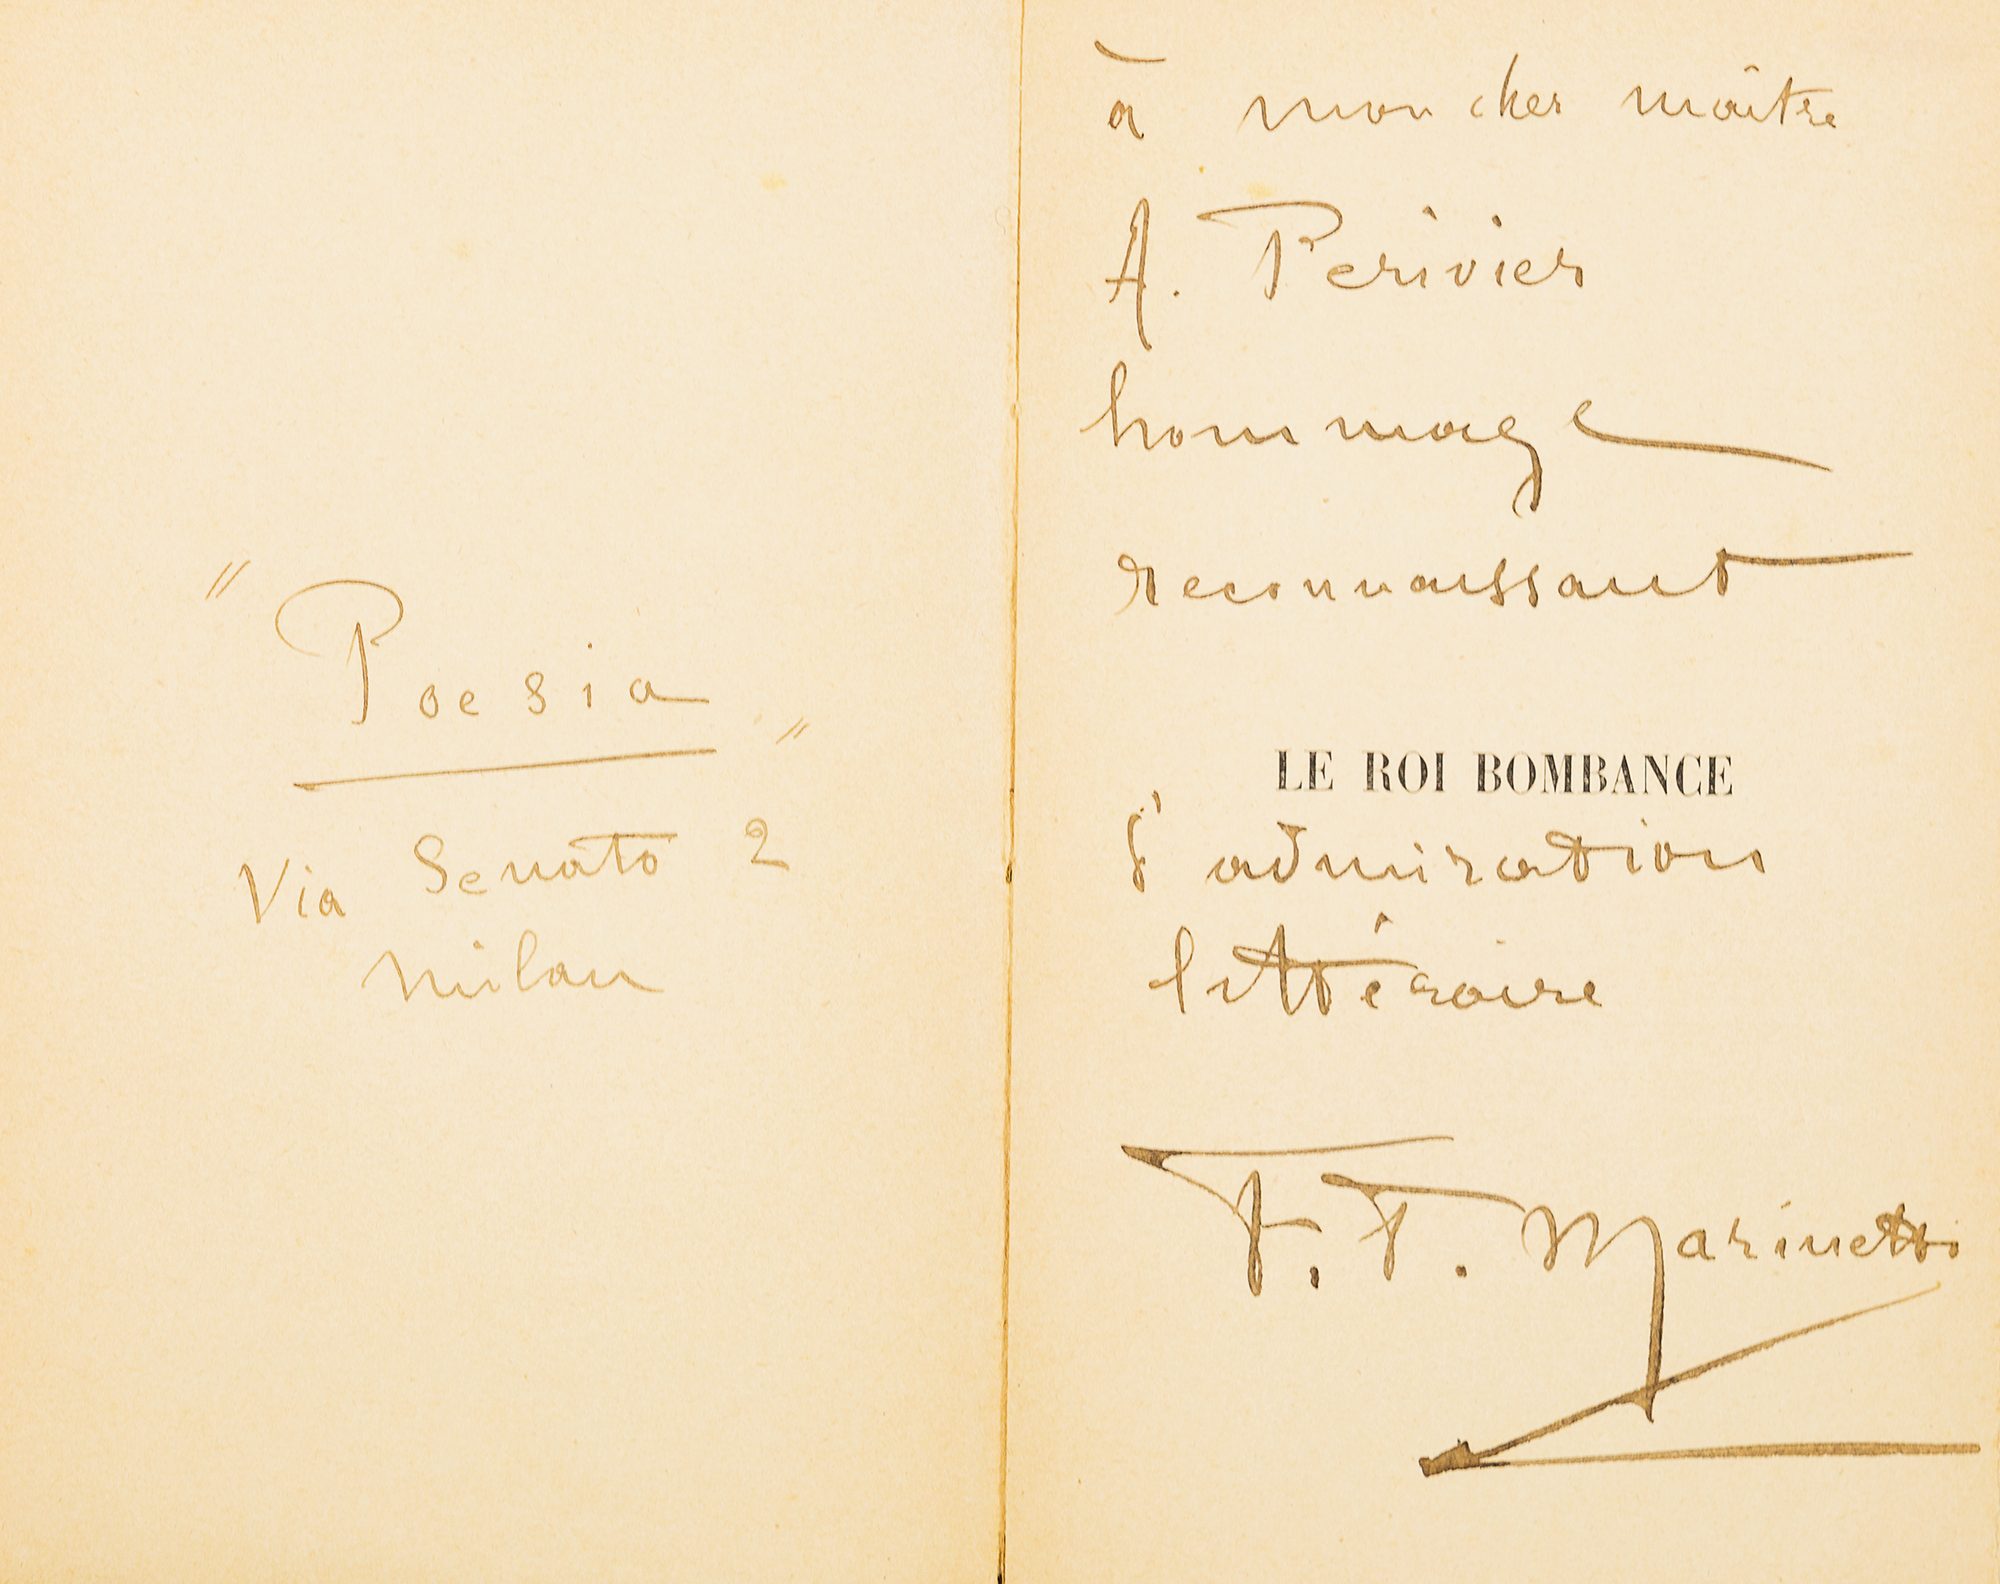 "Poesia"
Via Senato 2
Milan
à mon cher maître
A. Perivier
hommage
reconnaissant
LE ROI BOMBANCE
d'admiration
littéraire
F. T. Marinetti